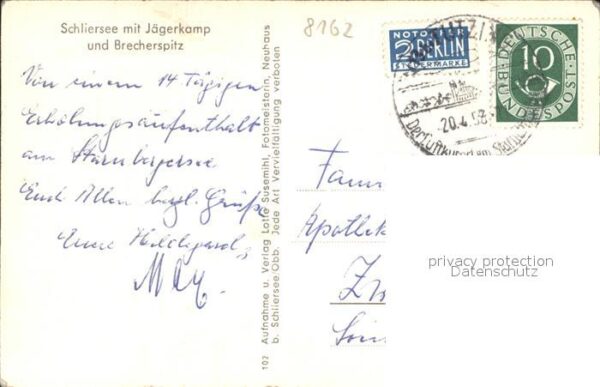 Schliersee mit Jägerkamp
und Brecherspitz
8162
Von einem 14 Tägigen
Erholungsaufenthalt
am Starnbergersee
Euch Allen herzl. Grüße
Eure Hildegard
102 Aufnahme u. Verlag Lotte Susemihl, Fotomeisterin, Neuhaus
b. Schliersee/Obb. Jede Art Vervielfältigung verboten
NOTOPFER
2 BERLIN
STEUERMARKE
TUTZI
20.4.53
Der Luftkurort am Starnb
DEUTSCHE
BUNDESPOST
10
Fam
Apothek
privacy protection
Datenschutz